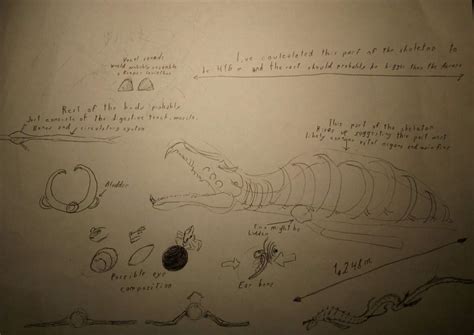 Vocal cords
would probably resemble
a Reaper Leviathan
I've coulculated this part of the skeleton to
be 416 m and the rest should probably be bigger than the
Rest of the body probably
Just consists of the digestive tract, muscle,
Bones and circulatory system
This part of the skeleton
rises up suggesting this part most
likely contains vital organs and main fins
Bladder
Fins might be
hidden
Possible eye
composition
Ear bone
1,246m